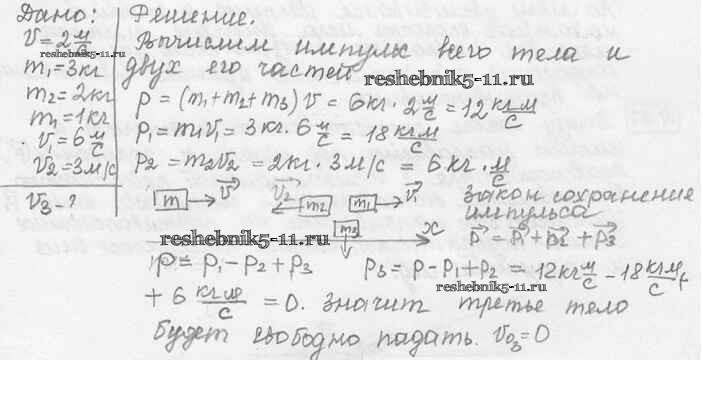 Дано:
V=2 м/с
m₁=3кг
m₂=2кг
m₁=1кг
V₁=6 м/с
V₂=3м/с
V₃-?
Решение.
Вычислим импульс всего тела и
двух его частей
reshebnik5-11.ru
p=(m₁+m₂+m₃)v=6кг·2 м/с=12 кгм/с
p₁=m₁v₁=3кг·6 м/с=18 кгм/с
p₂=m₂v₂=2кг·3м/с=6кг·м/с
m V V₂ m₂ m₁ V₁ закон сохранения
импульса
reshebnik5-11.ru m₂ x p=p₁+p₂+p₃
p=p₁-p₂+p₃ p₃=p-p₁+p₂=12кг м/с-18 кгм/с+
reshebnik5-11.ru
+6 кгм/с=0. значит третье тело
будет свободно падать. v₀₃=0